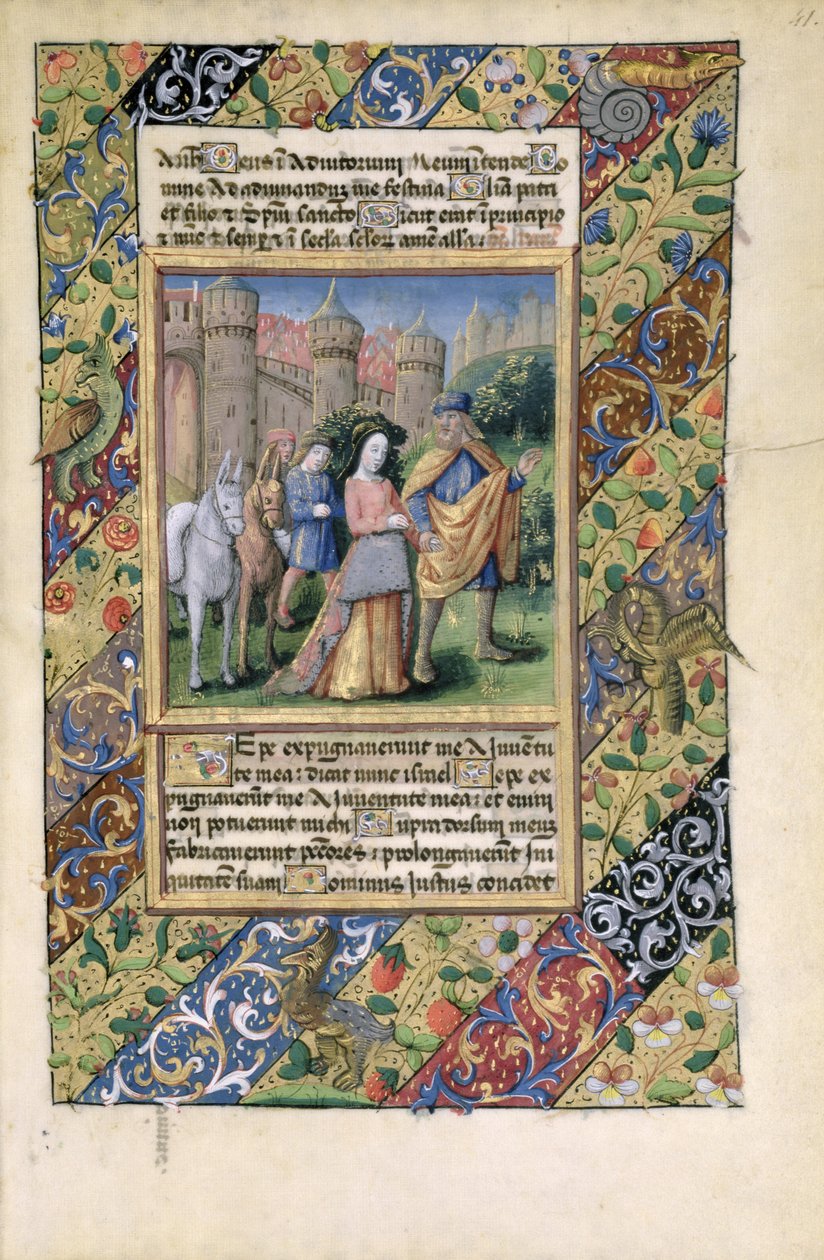 41.
Deus i Adiutorium Meum intende Do
mine Ad adiuuanduz me festina Glia patri
et filio & Spui sancto Sicut erat i principio
& nunc & semp & i secla sclor amen alla
Sepe expugnauerunt me A Juuentu
te mea: dicat nunc israel Sepe ex
pugnauerunt me A Juuentute mea: et enim
non potuerunt michi Supra dorsum meuz
fabricauerunt pccores: prolongauerunt Ini
quitatem suam Dominus Justus concidet